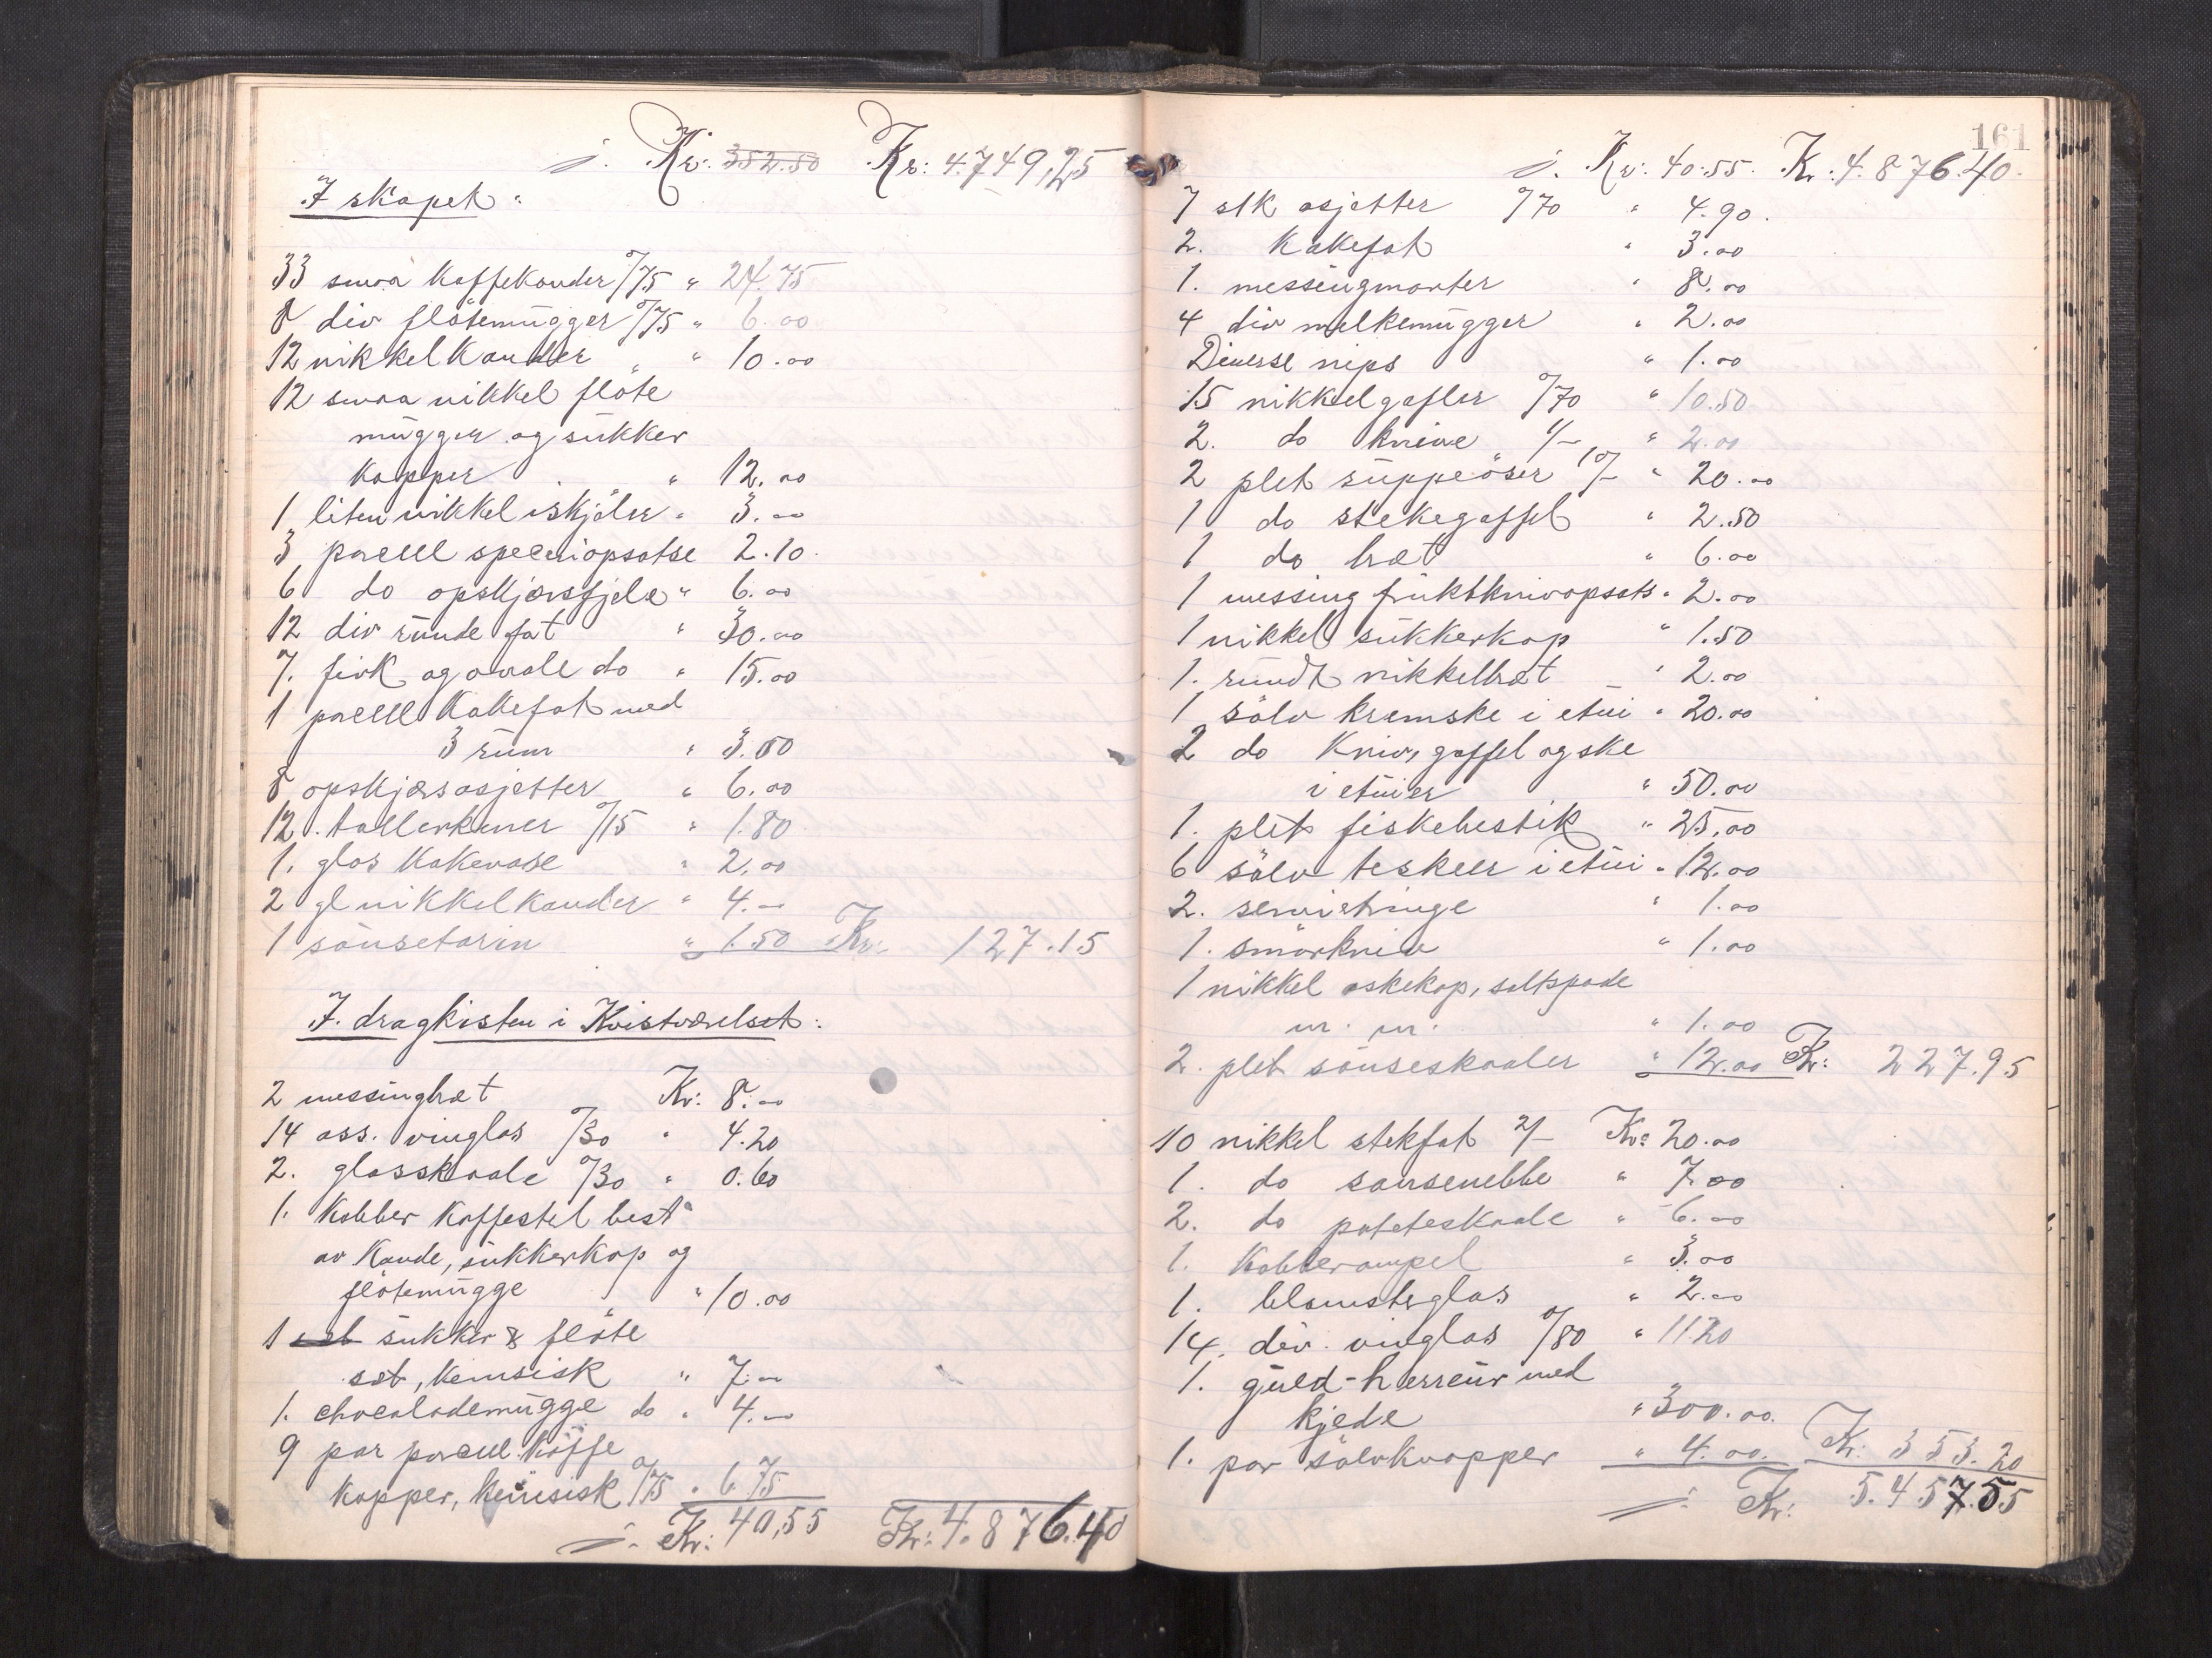 Kr: 352.50 Kr: 4.749,25
I skapet:
33 smaa kaffekander /75 " 24.75
8 div flötemugger /75 " 6.00
12 nikkelkander " " 10.00
12 smaa nikkel flöte
mugger og sukker
kopper " 12.00
1 liten nikkel iskjöler " 3.00
3 porcell speceriopsatse 2.10
6 do opskjærsfjele " 6.00
12 div runde fat " 30.00
7. firk og ovale do " 15.00
1 porcell kakefat med
3 rum " 3.50
8 opskjærsasjetter " 6.00
12. tallerkener /15 " 1.80
1. glas kakevase " 2.00
2 gl nikkelkander " 4.00
1 sausetarin " 1.50 Kr: 127.15
I. dragkisten i Kvistværelset:
2 messingbræt Kr: 8.00
14 ass. vinglas /30 " 4.20
2. glasskaale /30 " 0.60
1. kobber kaffestel best
av kande, sukkerkop og
flötemugge " 10.00
1 set sukker & flöte
set, kinesisk " 7.00
1. chocolademugge do " 4.00
9 par porcel. kaffe
kopper, kinesisk /75 " 6.75
Kr: 40,55 Kr: 4.876.40
161
Kr: 40.55. Kr: 4.876.40.
7 stk asjetter /70 " 4.90.
2. kakefat " 3.00
1. messingmorter " 8.00
4 div melkemugger " 2.00
Diverse nips " 1.00
15 nikkelgafler /70 " 10.50
2. do knive 1/- " 2.00
2 plet suppeöser 10/- " 20.00
1 do stekegaffel " 2.50
1 do bræt " 6.00
1 messing fruktknivopsats " 2.00
1 nikkel sukkerkop " 1.50
1. rundt nikkelbræt " 2.00
1 sölv kremske i etui " 20.00
2 do kniv, gaffel og ske
i etuier " 50.00
1. plet fiskebestik " 25.00
6 sölv teskeer i etui " 12.00
2. servietringe " 1.00
1. smörkniv " 1.00
1 nikkel askekop, saltspade
m. m. " 1.00
2. plet sauseskaaler " 12.00 Kr: 227.95
10 nikkel stekfat 2/- Kr: 20.00
1. do sausenebbe " 7.00
2. do poteteskaale " 6.00
1. kobberampel " 3.00
1. blomsterglas " 2.00
14. div. vinglas /80 " 11.20
1. guld-herreur med
kjede " 300.00.
1. par sölvknapper " 4.00. Kr: 353.20
Kr: 5.457.55